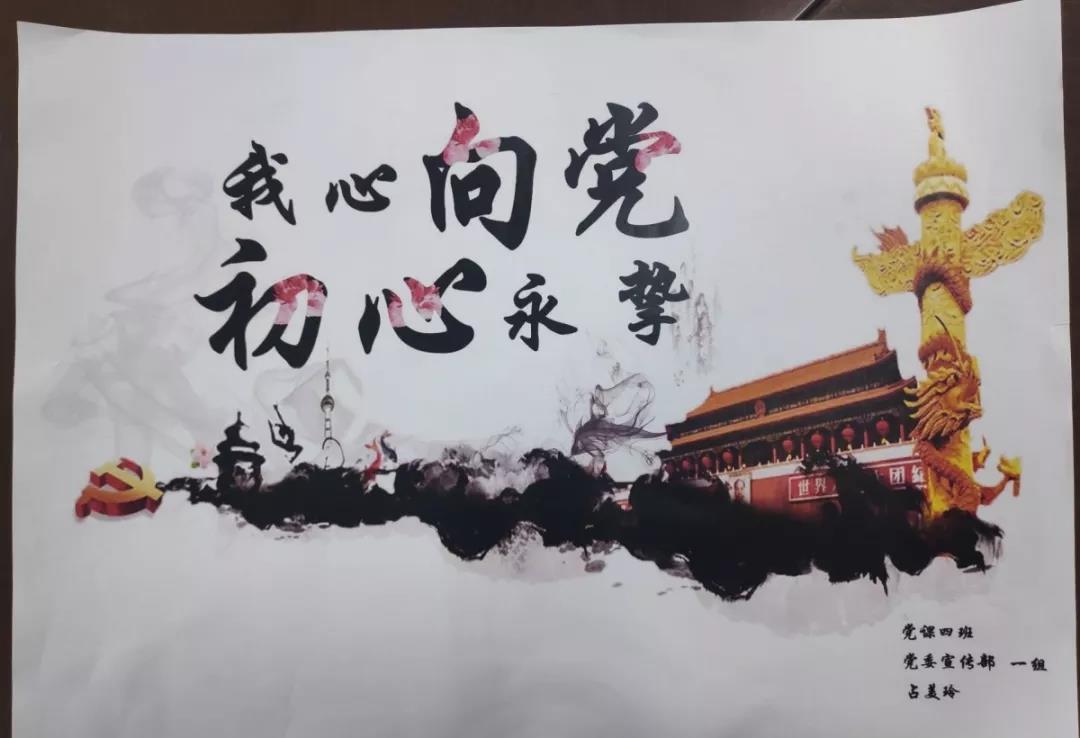 我心向党
初心永挚
世界
团结
党课四班
党委宣传部 一组
占美玲